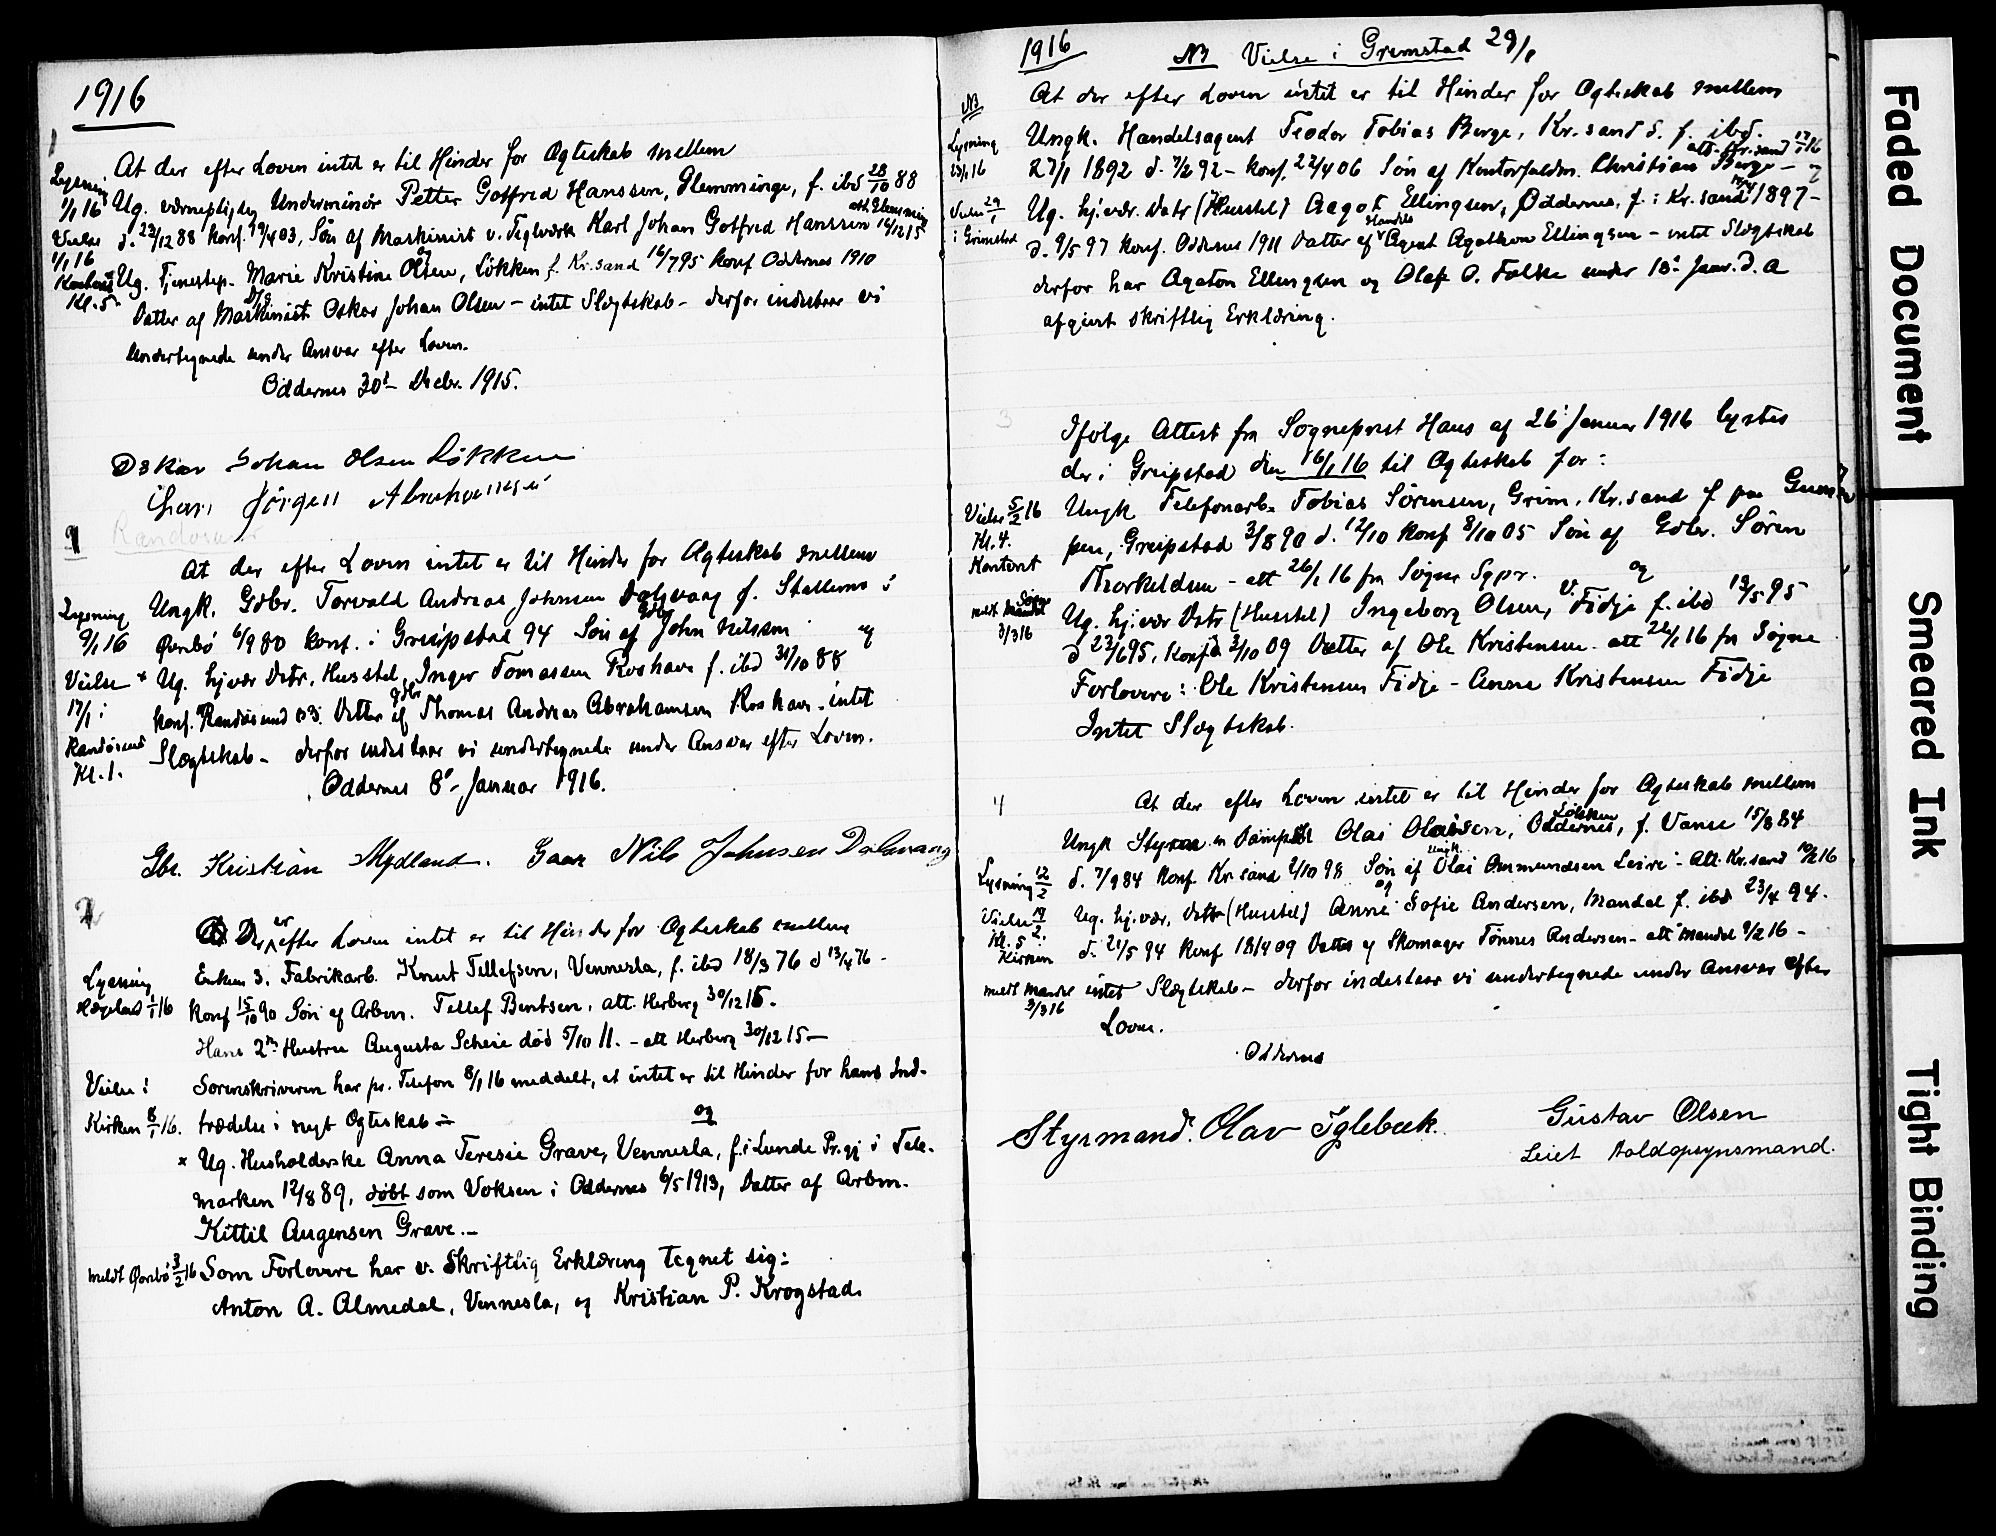 1916
1
At der efter Loven intet er til Hinder for Ægteskab mellem
Lysning
1/1 16
Vielse
1/1 16
Kl. 5
Ug. værnepligtig Underminør Petter Gotfred Hanssen, Glemminge, f. ibd 28/10 88
d. 23/12 88 konf. 19/4 03, Søn af Maskinist v. Teglværk Karl Johan Gotfred Hanssen att. Glemming 14/12 15
og
Ug. Tjenestep. Marie Kristine Olsen, Løkken f. Kr.sand 16/7 95 konf Oddernes 1910
Datter af Maskinist Oskar Johan Olsen – intet Slægtskab – derfor indestaar vi
Undertegnede under Ansvar efter Loven.
Oddernes 30t Decbr. 1915.
Oskar Johan Olsen Løkken
Jørgen
1
Randøsund
At der efter Loven intet er til Hinder for Ægteskab mellem
Lysning
9/1 16
Vielse
17/1 i
Randøsund
Kl. 1.
Ungk. Gdbr. Torvald Andreas Johnsen Dalsvaag f. Stallemo i
Øvrebø 6/9 80 konf. i Greipstad 94 Søn af Gdbr John Nilssen og
× Ug. hj.vær Datr. Husstel Inger Tomassen Roshavn f. ibd 31/10 88
konf. Randøsund 03. Datter af Gdbr Thomas Andreas Abrahamsen Roshavn – intet
Slægtskab – derfor indestaar vi undertegnede under Ansvar efter Loven.
Oddernes 8' Januar 1916.
Gbr. Kristian Mydland. Gaar Nils Johnsen Dalsvaag
2
Der er efter Loven intet er til Hinder for Ægteskab mellem
Lysning
Hægeland 1/1 16
Enkem 3. Fabrikarb. Knut Tellefsen, Vennesla, f. ibd 18/3 76 d 13/4 76 –
konf 15/10 90 Søn af Arbm. Tellef Bentsen, att. Herberg 30/12 15.
Hans 2n Hustru Augusta Scheie død 5/10 11. – att Herberg 30/12 15 –
Vielse i
Kirken 8/1 16.
Sorenskriveren har pr. Telefon 8/1 16 meddelt, at intet er til Hinder for hans Ind-
trædelse i nyt Ægteskab –
og
× Ug. Husholderske Anna Teresie Grave, Vennesla, f. i Lunde Pr.gj i Tele-
marken 12/8 89, døbt som Voksen i Oddernes 6/5 1913, Datter af Arbm.
Kittil Augensen Grave. –
meldt Øvrebø 3/2 16
Som Forlovere har v. Skriftlig Erklæring tegnet sig:
Anton A. Almedal, Vennesla, og Kristian P. Krogstad.
1916
NB Vielse i Grimstad 29/1
NB
At der efter Loven intet er til Hinder for Ægteskab mellem
Lysning
23/1 16
Vielse 29/1
i Grimstad
Ungk. Handelsagent Teodor Tobias Berge, Kr.sand S. f. ibd.
27/1 1892 d. 7/2 92 – konf. 22/4 06 Søn af Kontorfuldm. Christian Berge – att. Kr.sand 17/1 16
Ug. hj.vær. Datr (Husstel) Aagot Ellingsen, Oddernes, f. i Kr.sand 1897 –
d. 9/5 97 konf. Oddernes 1911 Datter af Handels Agent Agathon Ellingsen – intet Slægtskab
derfor har Agaton Ellingsen og Olaf O. Falke under 13' Januar d. A
afgivet skriftlig Erklæring.
3
Ifølge Attest fra Sogneprest Haus af 26' Januar 1916 lystes
der i Greipstad den 16/1 16 til Ægteskab for:
Vielse 5/2 16
Kl. 4.
Kontoret
meldt Søgne
3/3 16
Ungk Telefonarb. Tobias Sørensen, Grim, Kr.sand f paa
pen, Greipstad 3/8 90 d. 12/10 konf 8/10 05 Søn af Gdbr. Søren
Thorkeldsen – att 26/1 16 fra Søgne Sgpr. og
Ug. hj.vær Datr (Husstel) Ingeborg Olsen, V. Fidje f. ibd 19/5 95
d 23/6 95. konf. 3/10 09 Datter af Ole Kristensen – att 26/1 16 fra Søgne
Forlovere: Ole Kristensen Fidje – Anne Kristensen Fidje
Intet Slægtskab.
4
At der efter Loven intet er til Hinder for Ægteskab mellem
Lysning 12/2
Vielse 19/2.
Kl. 5
Kirken
Ungk Styrm. Olai Olaisen, Oddernes, Løkken f. Vanse 15/8 84
d. 7/9 84 konf Kr.sand 2/10 98 Søn af Ungk. Olai Ommundsen Leire – Att. Kr.sand 10/2 16
og
Ug. hj.vær. Datr (Husstel) Anne Sofie Andersen, Mandal f. ibd 23/4 94.
d. 21/5 94 konf 18/4 09 Datter af Skomager Tønnes Andersen – att Mandal 9/2 16 –
meldt Mandal
3/3 16
intet Slægtskab – derfor indestaar vi undertegnede under Ansvar efter
Loven.
Oddernes
Styrmand. Olav Iglebæk.
Gustav Olsen
Leiet Toldopsynsmand.
Faded Document
Smeared Ink
Tight Binding